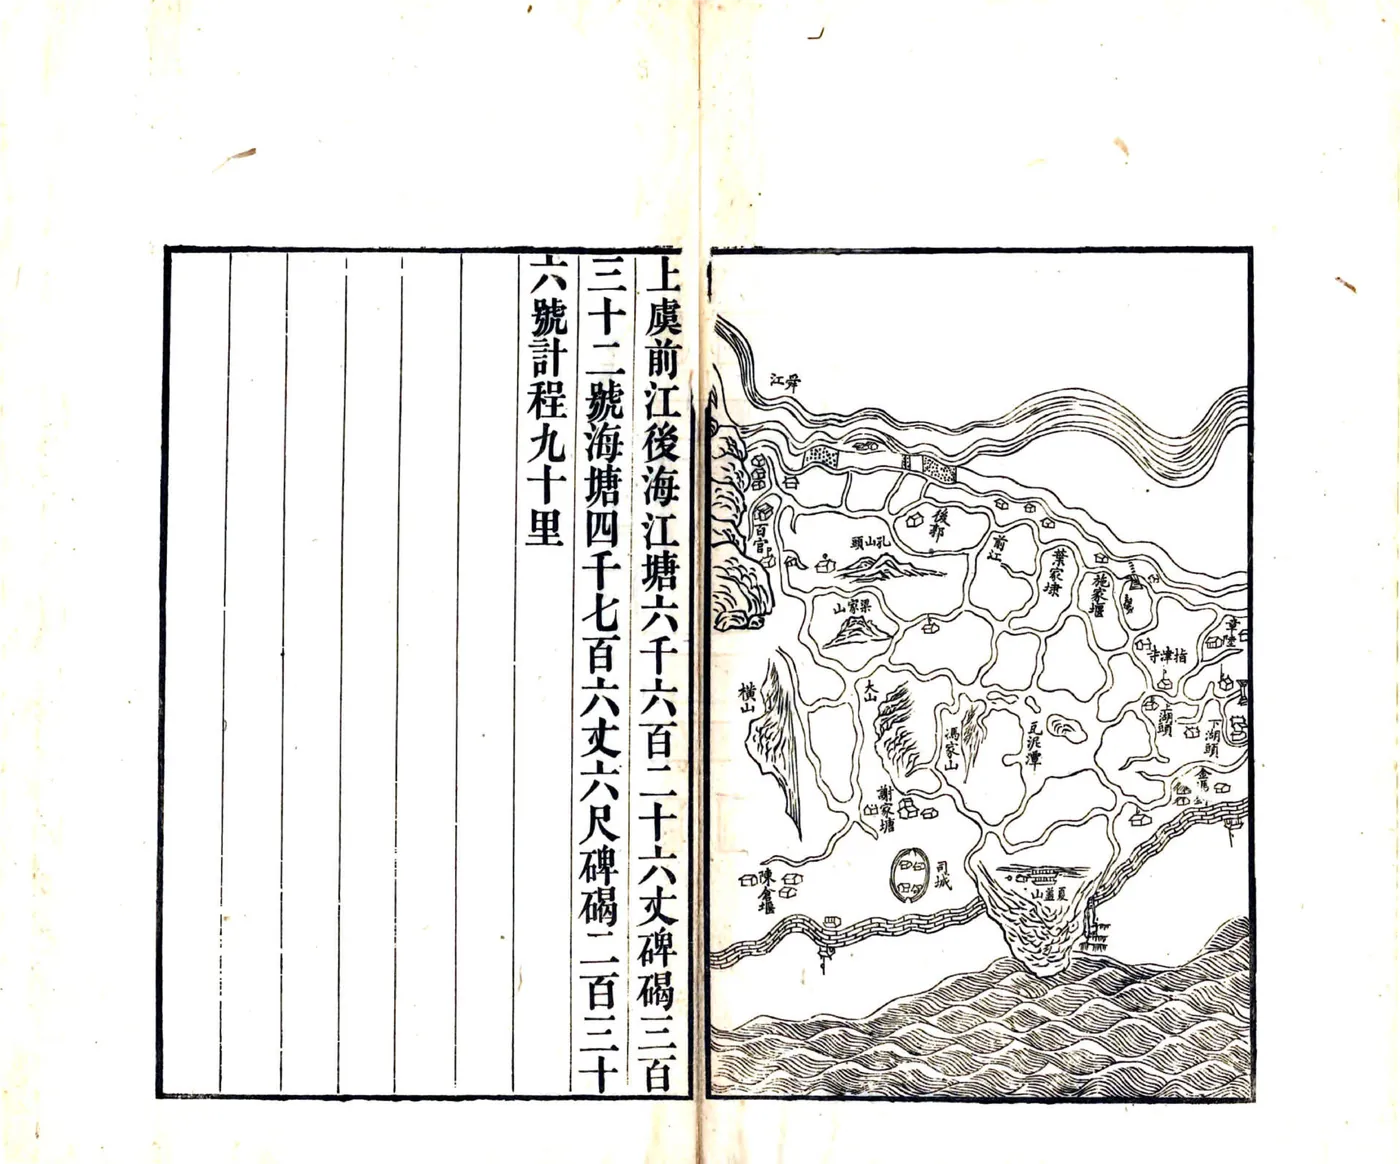 舜江
百官
孔山頭
後郭
前江
葉家埭
施家堰
梁家山
章陸
指津寺
橫山
大山
馮家山
瓦泥潭
上湖頭
下湖頭
謝家塘
司城
夏蓋山
陳倉堰
上虞前江後海江塘六千六百二十六丈碑碣三百
三十二號海塘四千七百六丈六尺碑碣二百三十
六號計程九十里